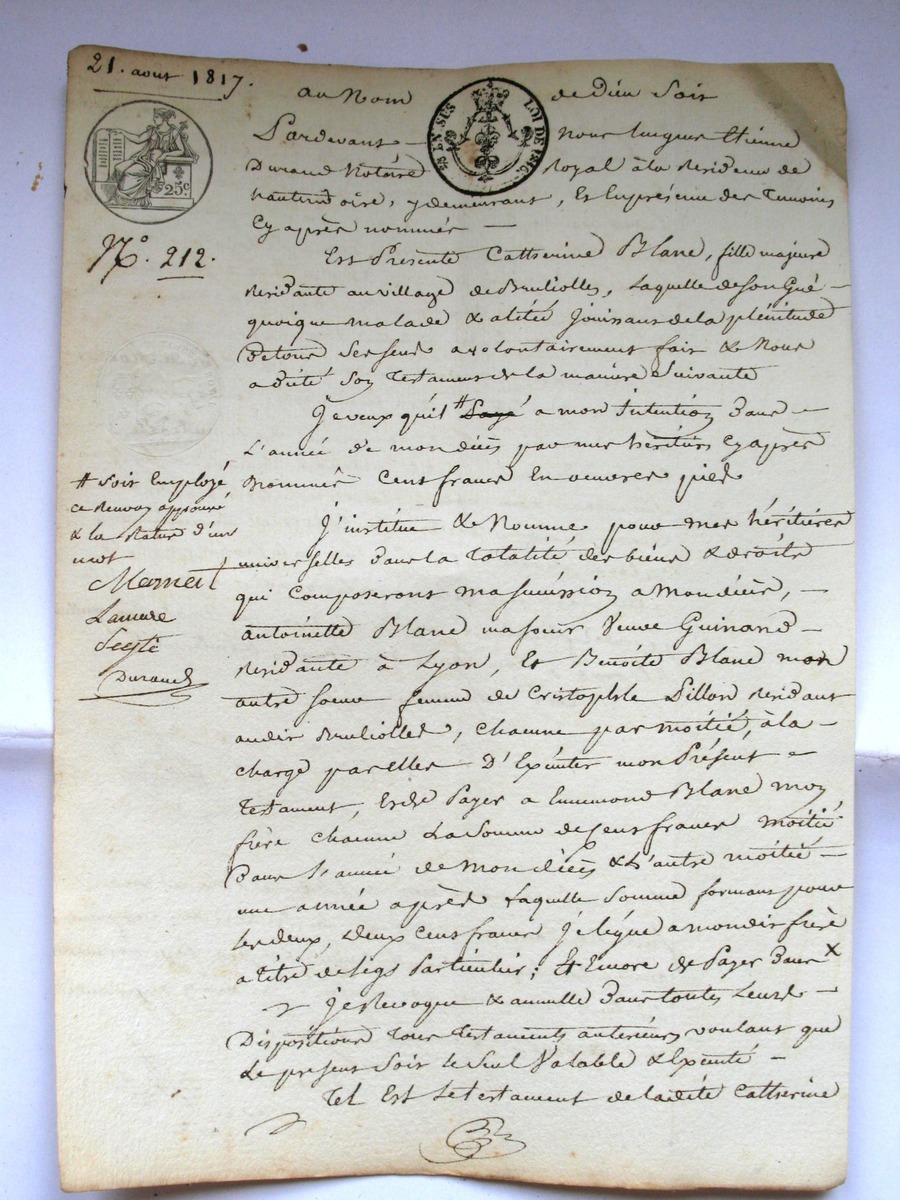 21. aout 1817.
au Nom de Dieu Soit
25 EN SUS LOI DE 1816.
25c.
Pardevant nous hugues Etienne
Durand Notaire Royal à la Residence de
hauterivoire, y demeurant, Et En présence des Temoins
Cy après nommés —
N°. 212.
Est Présente Catherine Blanc, fille majeure
Residante au village de Bruliolles, Laquelle de son Gué —
quoique malade & alitée Jouissant de la plénitude
de tous ses sens a volontairement fait & Nous
a dicté son Testament de la maniere Suivante
Je veux qu'il # Payé a mon Intention Dans —
L'année de mon décès par mes héritiers Cy après
Nommés Cent francs En oeuvres pies
# Soit Employé
ce Renvoy approuvé
& la Rature d'un
mot
Lamure
Durand
J'institue & Nomme pour mes héritières
universelles Dans la Totalité des biens & droits
qui Composeront ma succession a mon décès, —
antoinette Blanc ma soeur Veuve Guinand —
Residante à Lyon, Et Benoite Blanc mon
autre soeur femme de Cristophle Pillon Residant
audit Bruliolles, Chacune par moitié, à la —
charge par elles D'Exécuter mon Présent —
Testament, Et de Payer a Ennemond Blanc mon
frère Chacune La Somme de Cent francs moitié
Dans l'année de Mon décès & L'autre moitié —
une année après Laquelle Somme formant pour
les deux, Deux Cent francs Je lègue a mon dit frère
a titre de legs Particulier; Et Encore de Payer Dans X
Je Revoque & annulle Dans toutes Leurs —
Dispositions Tous Testaments anterieurs voulant que
Le présent Soit le Seul Valable & Exécuté —
Tel Est Le testament de ladite Catherine